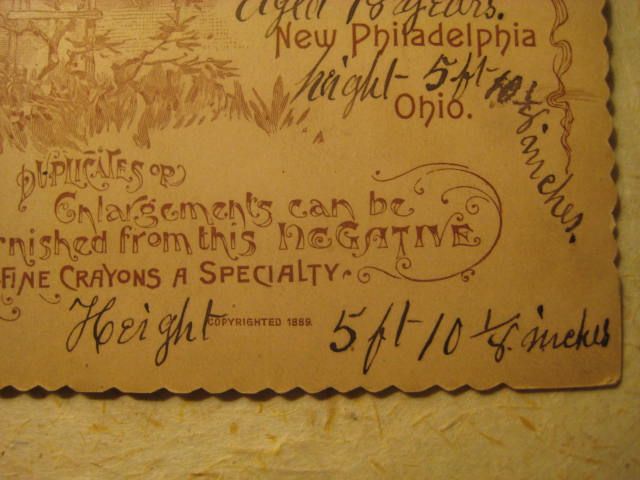 aged 18 years.
New Philadelphia
height 5 ft 10 1/8 inches.
Ohio.
DUPLICATES OR
Enlargements can be
rnished from this NEGATIVE
FINE CRAYONS A SPECIALTY.
COPYRIGHTED 1889.
Height 5 ft 10 1/8 inches